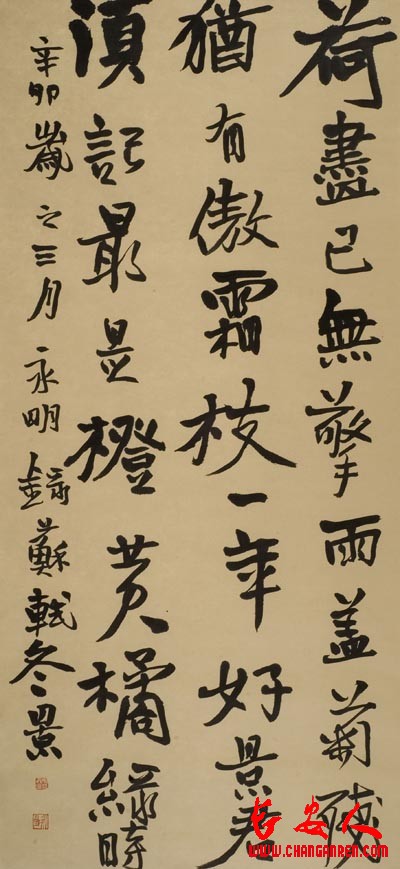 荷盡已無擎雨盖菊殘
猶有傲霜枝一年好景君
須記最是橙黄橘緑時
辛卯歲之三月永明録蘇軾冬景
长安人
WWW.CHANGANREN.COM